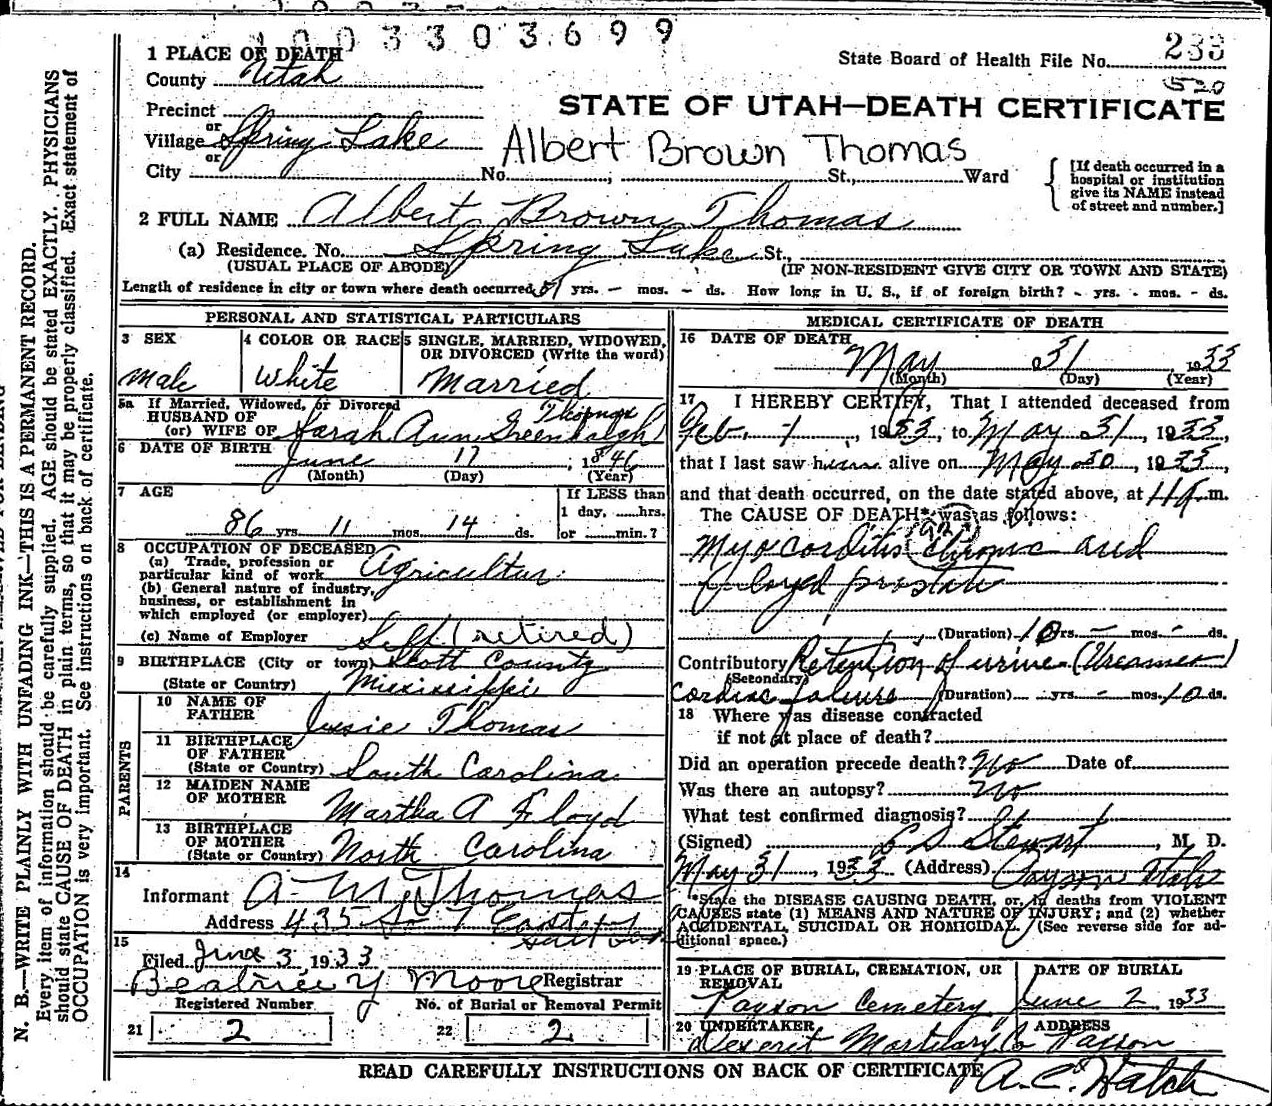 1003303699
1 PLACE OF DEATH
State Board of Health File No. 233
County Utah
520
STATE OF UTAH—DEATH CERTIFICATE
Precinct
or
Village Spring Lake
Albert Brown Thomas
or
City No. , St., Ward
[If death occurred in a hospital or institution give its NAME instead of street and number.]
2 FULL NAME Albert Brown Thomas
(a) Residence. No. Spring Lake St.,
(USUAL PLACE OF ABODE) (IF NON-RESIDENT GIVE CITY OR TOWN AND STATE)
Length of residence in city or town where death occurred yrs. - mos. - ds. How long in U. S., if of foreign birth? - yrs. - mos. - ds.
PERSONAL AND STATISTICAL PARTICULARS
3 SEX
Male
4 COLOR OR RACE
White
5 SINGLE, MARRIED, WIDOWED,
OR DIVORCED (Write the word)
Married
5a If Married, Widowed, or Divorced
HUSBAND OF
(or) WIFE OF Sarah Ann Greenhalgh Thomas
6 DATE OF BIRTH June 17, 1846
(Month) (Day) (Year)
7 AGE
86 yrs. 11 mos. 14 ds.
If LESS than
1 day, ......hrs.
or ......min.?
8 OCCUPATION OF DECEASED
(a) Trade, profession or
particular kind of work Agricultur
(b) General nature of industry,
business, or establishment in
which employed (or employer)
(c) Name of Employer Self (retired)
9 BIRTHPLACE (City or town) Scott County
(State or Country) Mississippi
PARENTS
10 NAME OF
FATHER Thomas
11 BIRTHPLACE
OF FATHER
(State or Country) South Carolina
12 MAIDEN NAME
OF MOTHER Martha A Floyd
13 BIRTHPLACE
OF MOTHER
(State or Country) North Carolina
14
Informant A. M. Thomas
Address 435 So 7 East
15
Filed June 3, 1933
Beatrice Y Moore Registrar
Registered Number No. of Burial or Removal Permit
21 2 22 2
MEDICAL CERTIFICATE OF DEATH
16 DATE OF DEATH
May 31 1933
(Month) (Day) (Year)
17 I HEREBY CERTIFY, That I attended deceased from
Feb. 1, 1933, to May 31, 1933,
that I last saw him alive on May 30, 1933,
and that death occurred, on the date stated above, at m.
The CAUSE OF DEATH* was as follows:
Myocarditis Chronic and
prostate
(Duration) 10 yrs. - mos. - ds.
Contributory Retention of urine
(Secondary)
Cardiac failure (Duration) yrs. - mos. 10 ds.
18 Where was disease contracted
if not at place of death?
Did an operation precede death? No Date of
Was there an autopsy? No
What test confirmed diagnosis?
(Signed) Stewart, M. D.
May 31, 1933 (Address) Payson Utah
*State the DISEASE CAUSING DEATH, or, in deaths from VIOLENT
CAUSES state (1) MEANS AND NATURE OF INJURY; and (2) whether
ACCIDENTAL, SUICIDAL OR HOMICIDAL. (See reverse side for ad-
ditional space.)
19 PLACE OF BURIAL, CREMATION, OR
REMOVAL
Payson Cemetery
DATE OF BURIAL
June 2, 1933
20 UNDERTAKER
Deseret Mortuary Co
ADDRESS
Payson
READ CAREFULLY INSTRUCTIONS ON BACK OF CERTIFICATE
A. C. Hatch
N. B.—WRITE PLAINLY WITH UNFADING INK—THIS IS A PERMANENT RECORD.
Every item of information should be carefully supplied. AGE should be stated EXACTLY. PHYSICIANS
should state CAUSE OF DEATH in plain terms, so that it may be properly classified. Exact statement of
OCCUPATION is very important. See instructions on back of certificate.